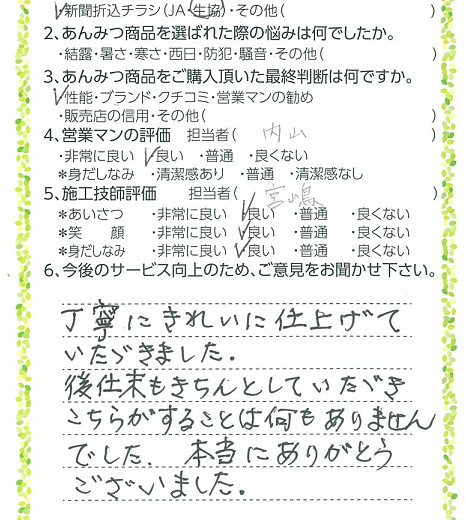 ・新聞折込チラシ(JA・生協)・その他(　　　)
2、あんみつ商品を選ばれた際の悩みは何でしたか。
・結露・暑さ・寒さ・西日・防犯・騒音・その他(　　　)
3、あんみつ商品をご購入頂いた最終判断は何ですか。
✓性能・ブランド・クチコミ・営業マンの勧め
・販売店の信用・その他(　　　)
4、営業マンの評価　担当者(　内山　)
・非常に良い ✓良い ・普通 ・良くない
＊身だしなみ ・清潔感あり ・普通 ・清潔感なし
5、施工技師評価　担当者(　宮嶋　)
＊あいさつ ・非常に良い ✓良い ・普通 ・良くない
＊笑　顔 ・非常に良い ✓良い ・普通 ・良くない
＊身だしなみ ・非常に良い ✓良い ・普通 ・良くない
6、今後のサービス向上のため、ご意見をお聞かせ下さい。
丁寧にきれいに仕上げて
いただきました。
後仕末もきちんとしていただき
こちらがすることは何もありません
でした。本当にありがとう
ございました。